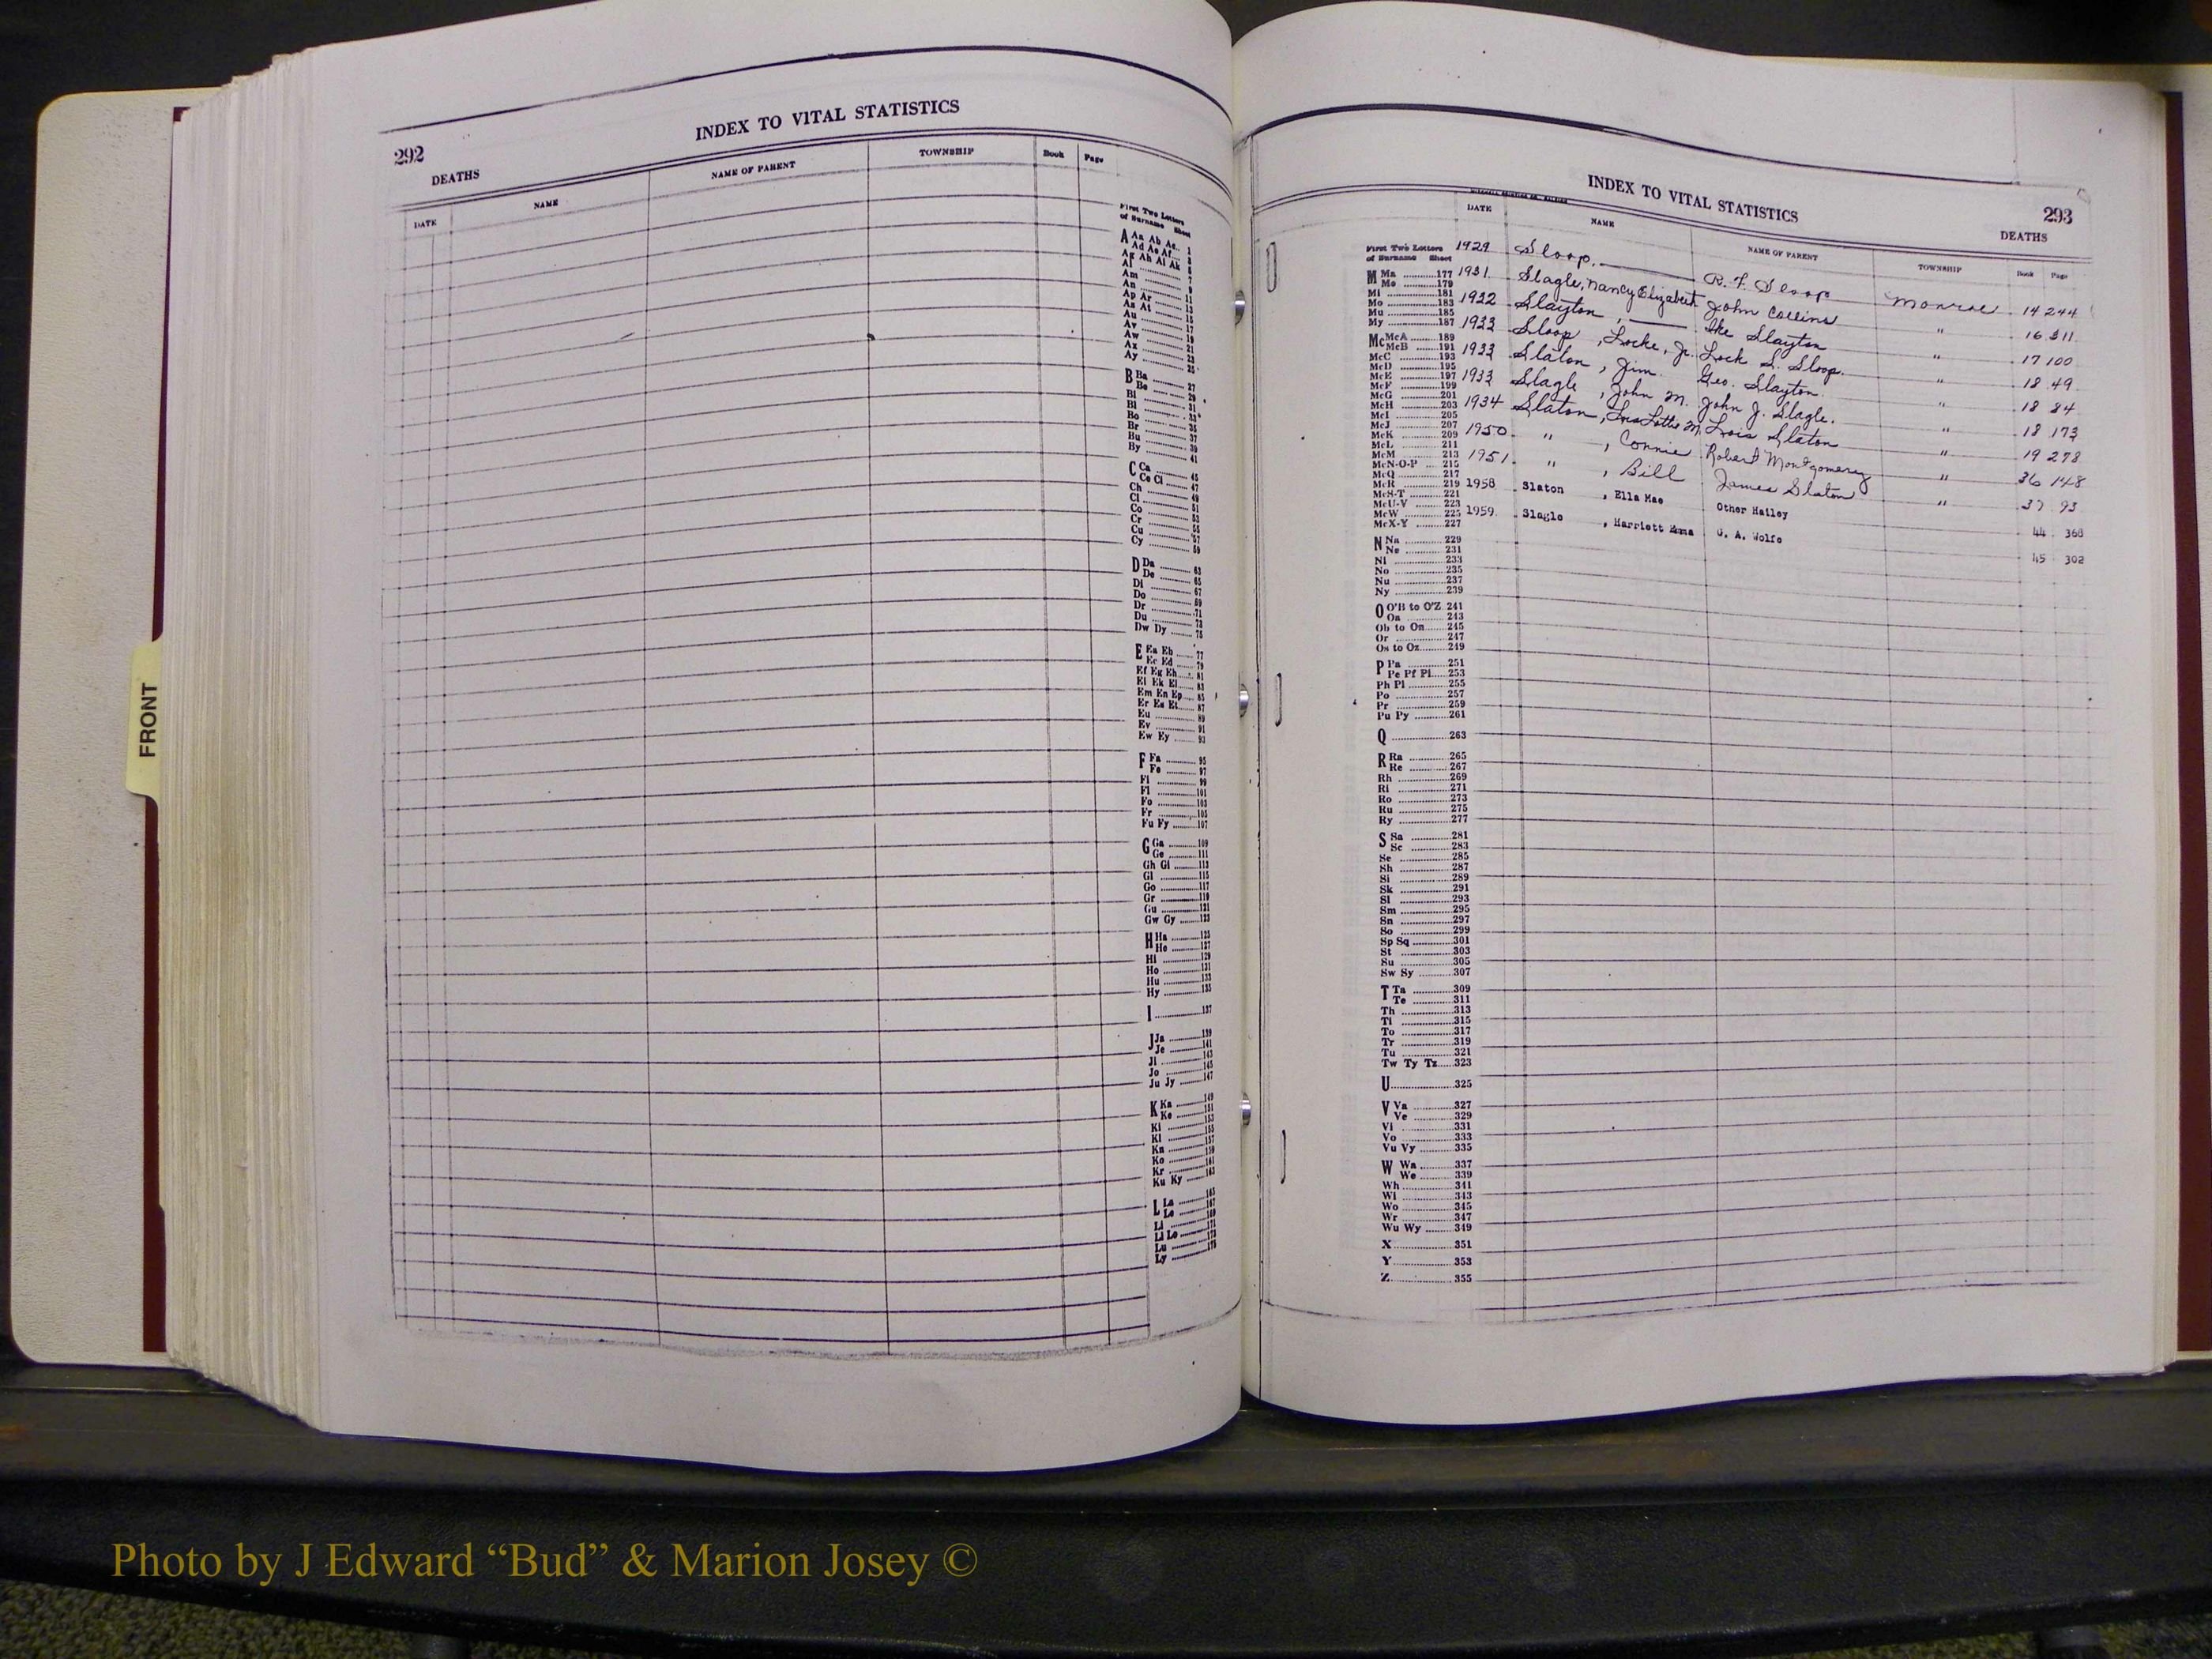 FRONT
292
INDEX TO VITAL STATISTICS
DEATHS
DATE NAME NAME OF PARENT TOWNSHIP Book Page
First Two Letters
of Surname Sheet
A Aa Ab Ac 1
Ad Ae Af
Ag Ah Ai Ak
Al
Am
An
Ap Ar 11
As At
Au
Av
Aw
Ax
Ay 25
B Ba 27
Be 29
Bi 31
Bl 33
Bo 35
Br 37
Bu 39
By 41
C Ca 45
Ce Ci 47
Ch 49
Cl 51
Co 53
Cr 55
Cu 57
Cy 59
D Da 63
De 65
Di 67
Do 69
Dr 71
Du 73
Dw Dy 75
E Ea Eb 77
Ec Ed 79
Ef Eg Eh 81
Ei Ek El 83
Em En Ep 85
Er Es Et 87
Eu 89
Ev 91
Ew Ey 93
F Fa 95
Fe 97
Fi 99
Fl 101
Fo 103
Fr 105
Fu Fy 107
G Ga 109
Ge 111
Gh Gi 113
Gl 115
Go 117
Gr 119
Gu 121
Gw Gy 123
H Ha 125
He 127
Hi 129
Ho 131
Hu 133
Hy 135
I 137
J Ja 139
Je 141
Ji 143
Jo 145
Ju Jy 147
K Ka 149
Ke 151
Ki 153
Kl 155
Kn 157
Ko 159
Kr 161
Ku Ky 163
L La 165
Le 167
Li 169
Ll Lo 171
Lu 173
Ly 175
INDEX TO VITAL STATISTICS
293
DEATHS
DATE NAME NAME OF PARENT TOWNSHIP Book Page
First Two Letters
of Surname Sheet
1929 Sloop, R. F. Sloop Monroe 14 244
1931 Slagle, Nancy Elizabeth John Collins " 16 311
1932 Slayton, Ike Slayton " 17 100
1933 Sloop, Locke, Jr. Lock S. Sloop. " 18 49
1933 Slaton, Jim. Geo. Slayton. " 18 84
1933 Slagle, John M. John J. Slagle. " 18 173
1934 Slaton, Lottie M. Lois Slaton " 19 278
1950 " , Connie Robert Montgomery " 36 148
1951 " , Bill James Slaton " 37 93
1958 Slaton, Ella Mae Other Hailey 44 368
1959 Slagle, Harriett Emma G. A. Wolfe 45 302
M Ma 177
Me 179
Mi 181
Mo 183
Mu 185
My 187
Mc McA 189
McB 191
McC 193
McD 195
McE 197
McF 199
McG 201
McH 203
McI 205
McJ 207
McK 209
McL 211
McM 213
McN-O-P 215
McQ 217
McR 219
McS-T 221
McU-V 223
McW 225
McX-Y 227
N Na 229
Ne 231
Ni 233
No 235
Nu 237
Ny 239
O O'B to O'Z 241
Oa 243
Ob to On 245
Or 247
Os to Oz 249
P Pa 251
Pe Pf Pl 253
Ph Pi 255
Po 257
Pr 259
Pu Py 261
Q 263
R Ra 265
Re 267
Rh 269
Ri 271
Ro 273
Ru 275
Ry 277
S Sa 281
Sc 283
Se 285
Sh 287
Si 289
Sk 291
Sl 293
Sm 295
Sn 297
So 299
Sp Sq 301
St 303
Su 305
Sw Sy 307
T Ta 309
Te 311
Th 313
Ti 315
To 317
Tr 319
Tu 321
Tw Ty Tz 323
U 325
V Va 327
Ve 329
Vi 331
Vo 333
Vu Vy 335
W Wa 337
We 339
Wh 341
Wi 343
Wo 345
Wr 347
Wu Wy 349
X 351
Y 353
Z 355
Photo by J Edward “Bud” & Marion Josey ©